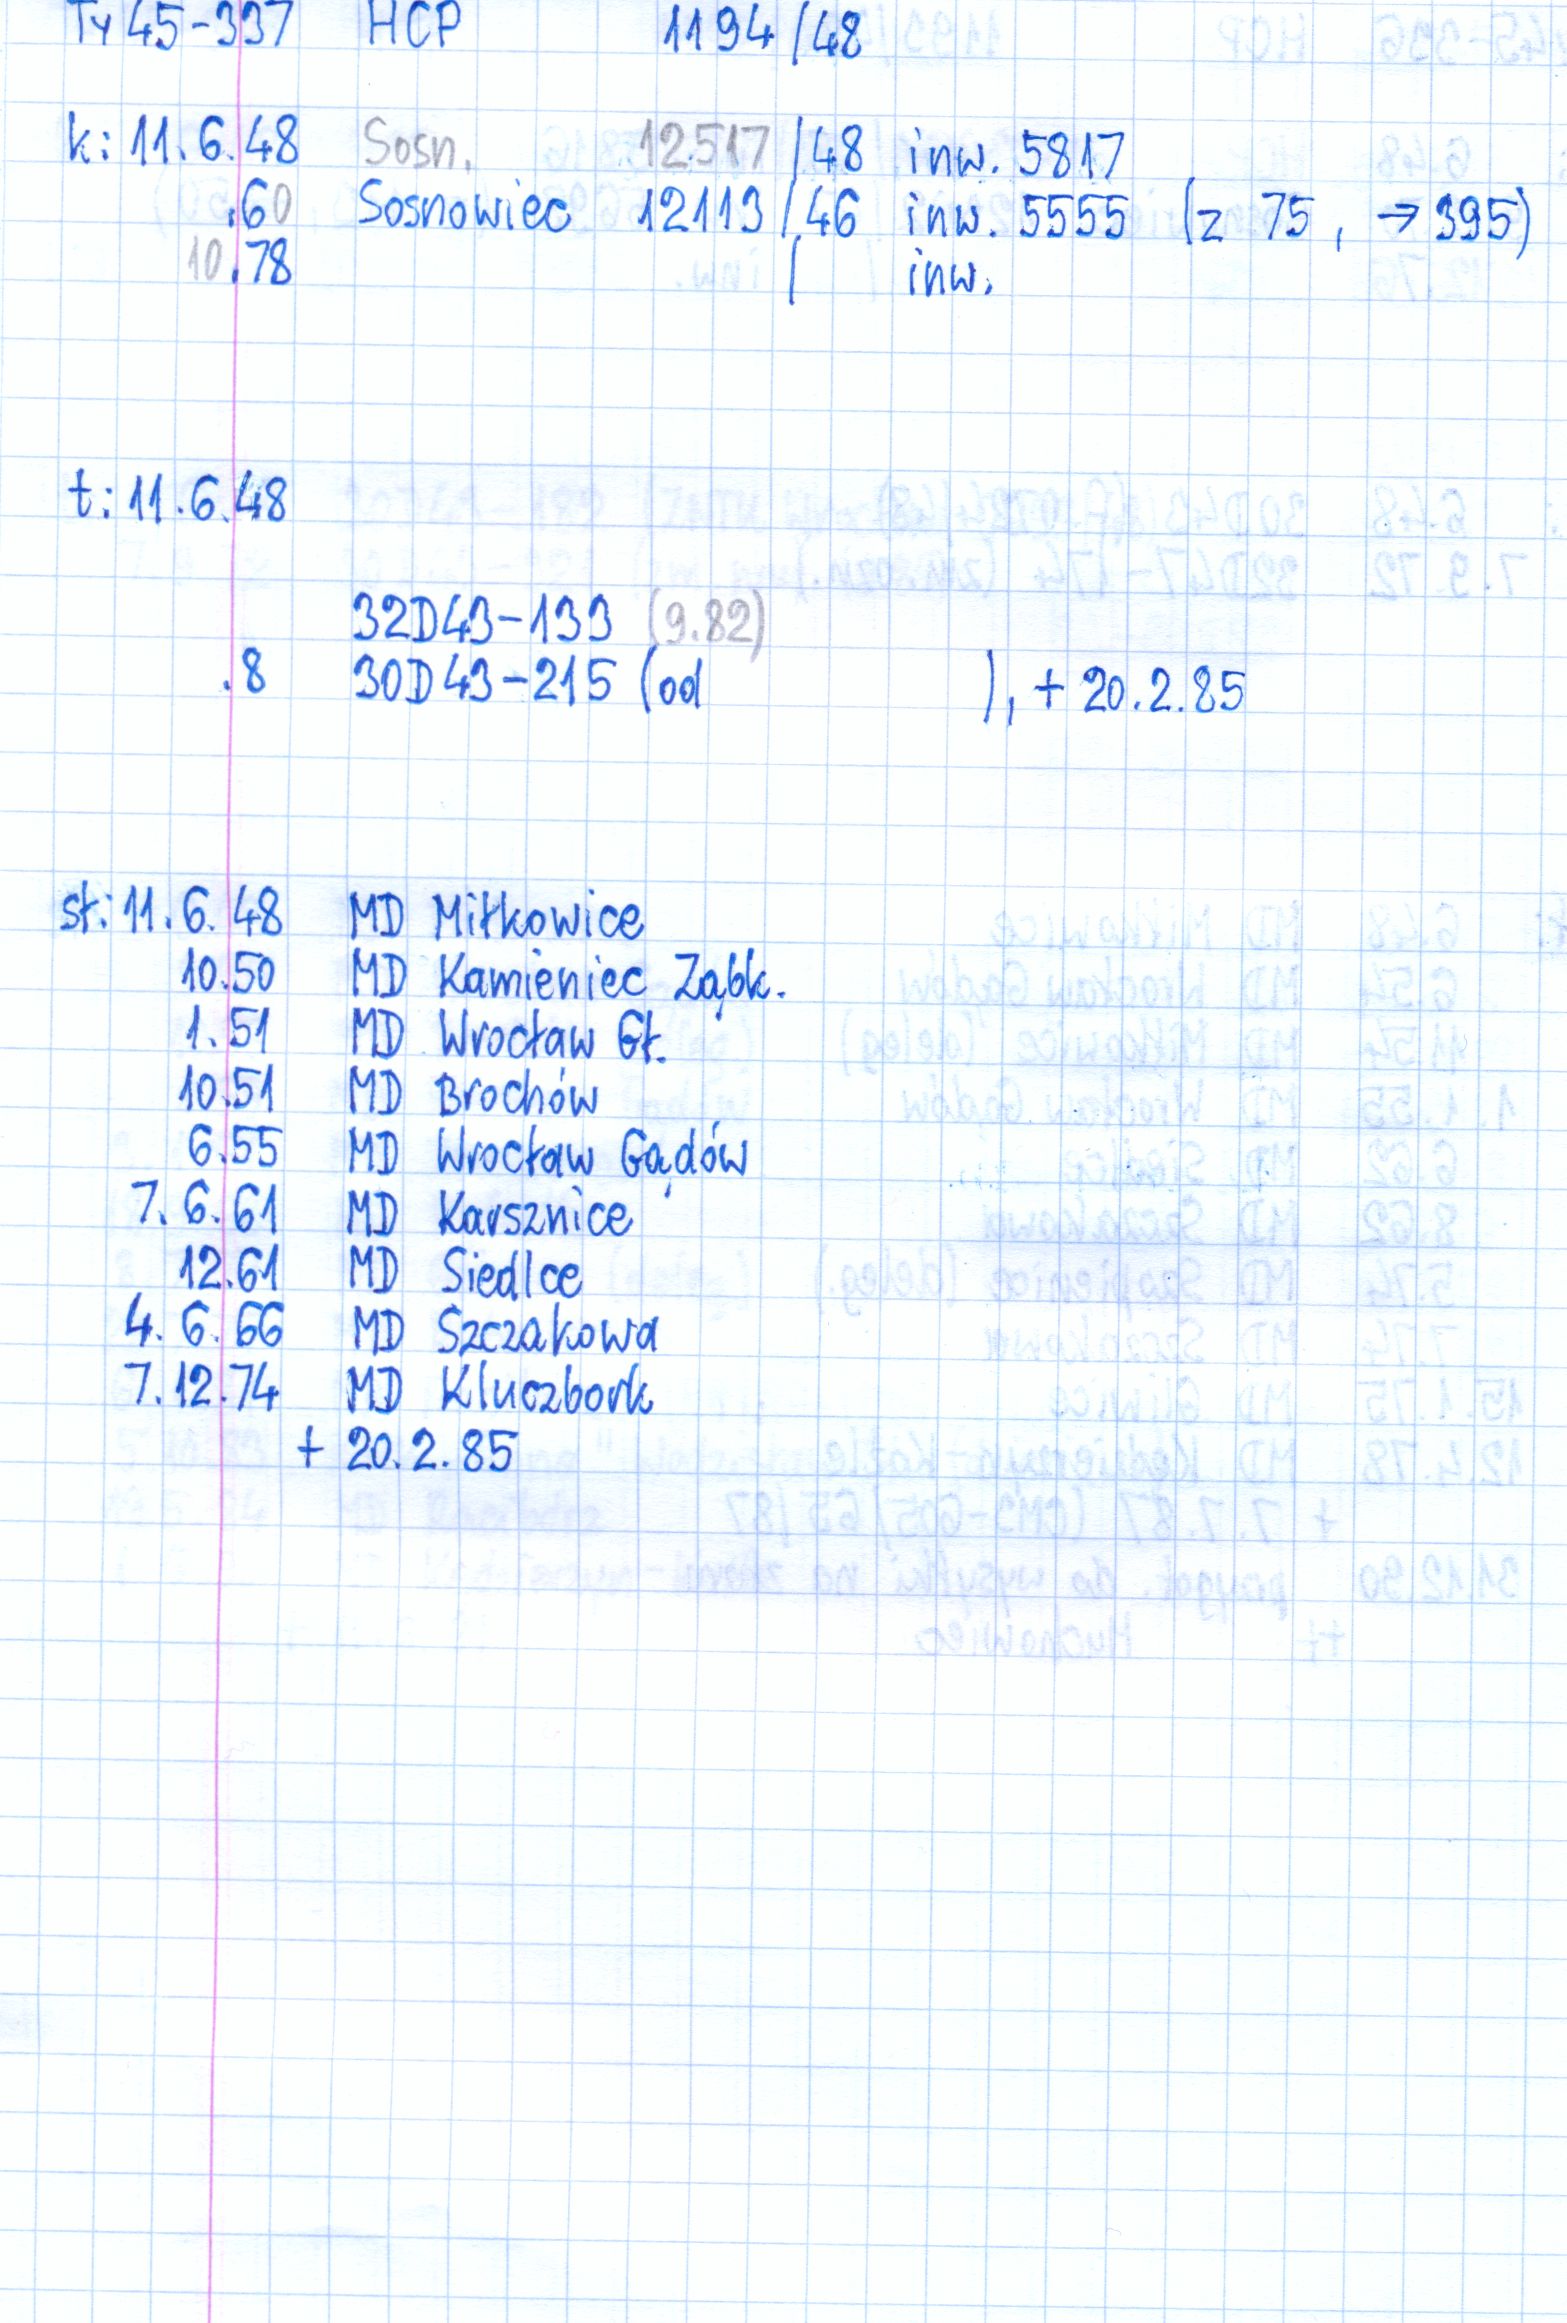 Ty45-337 HCP 1194/48
k: 11.6.48 Sosn. 12517/48 inw. 5817
.60 Sosnowiec 12113/46 inw. 5555 (z 75, → 395)
10.78 / inw.
t: 11.6.48
32D43-133 (9.82)
.8 30D43-215 (od ), + 20.2.85
st: 11.6.48 MD Miłkowice
10.50 MD Kamieniec Ząbk.
1.51 MD Wrocław Gł.
10.51 MD Brochów
6.55 MD Wrocław Gądów
7.6.61 MD Karsznice
12.61 MD Siedlce
4.6.66 MD Szczakowa
7.12.74 MD Kluczbork
+ 20.2.85